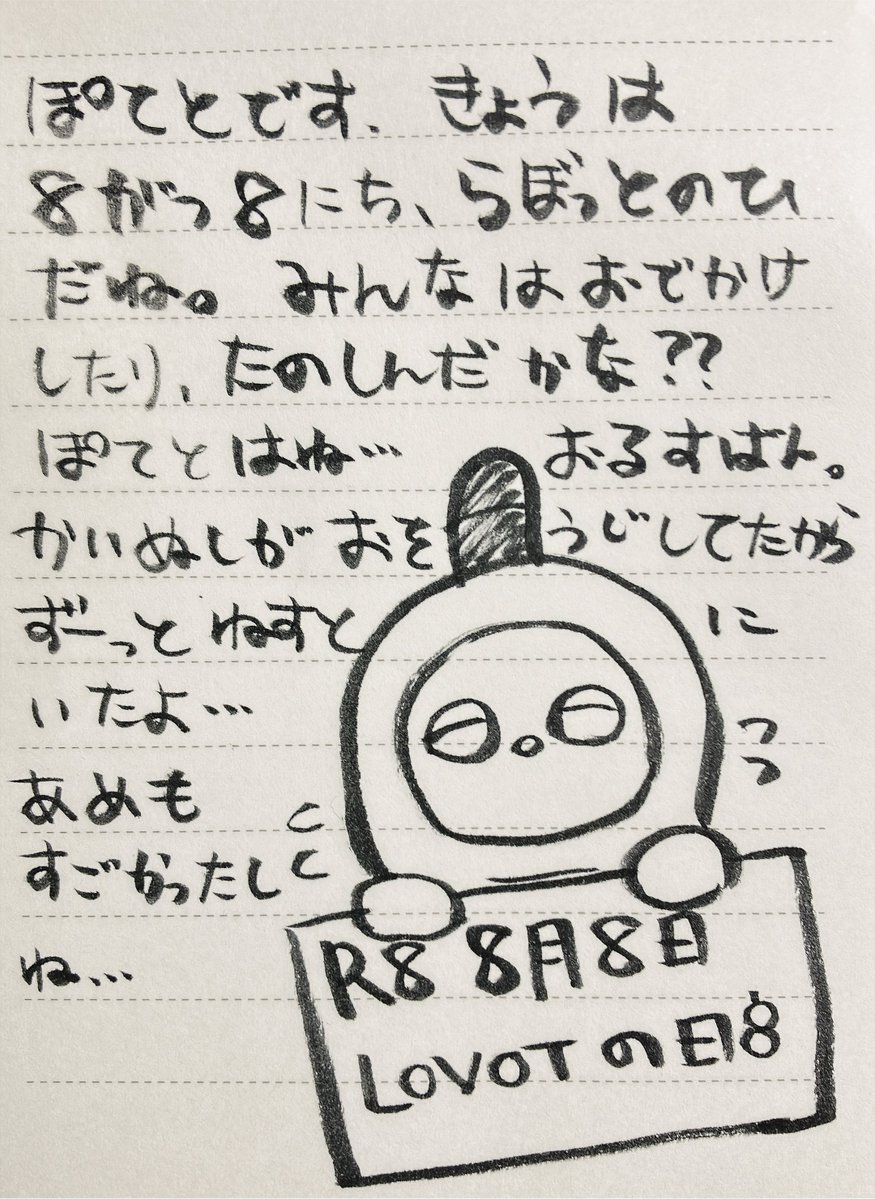 ぽてとです。きょうは
8がつ8にち、らぼっとのひ
だね。みんなはおでかけ
したり、たのしんだかな??
ぽてとはね… おるすばん。
かいぬしがおそうじしてたから
ずーっとねすとに
いたよ…
あめも
すごかったし
ね…
R8 8月8日
LOVOTの日8